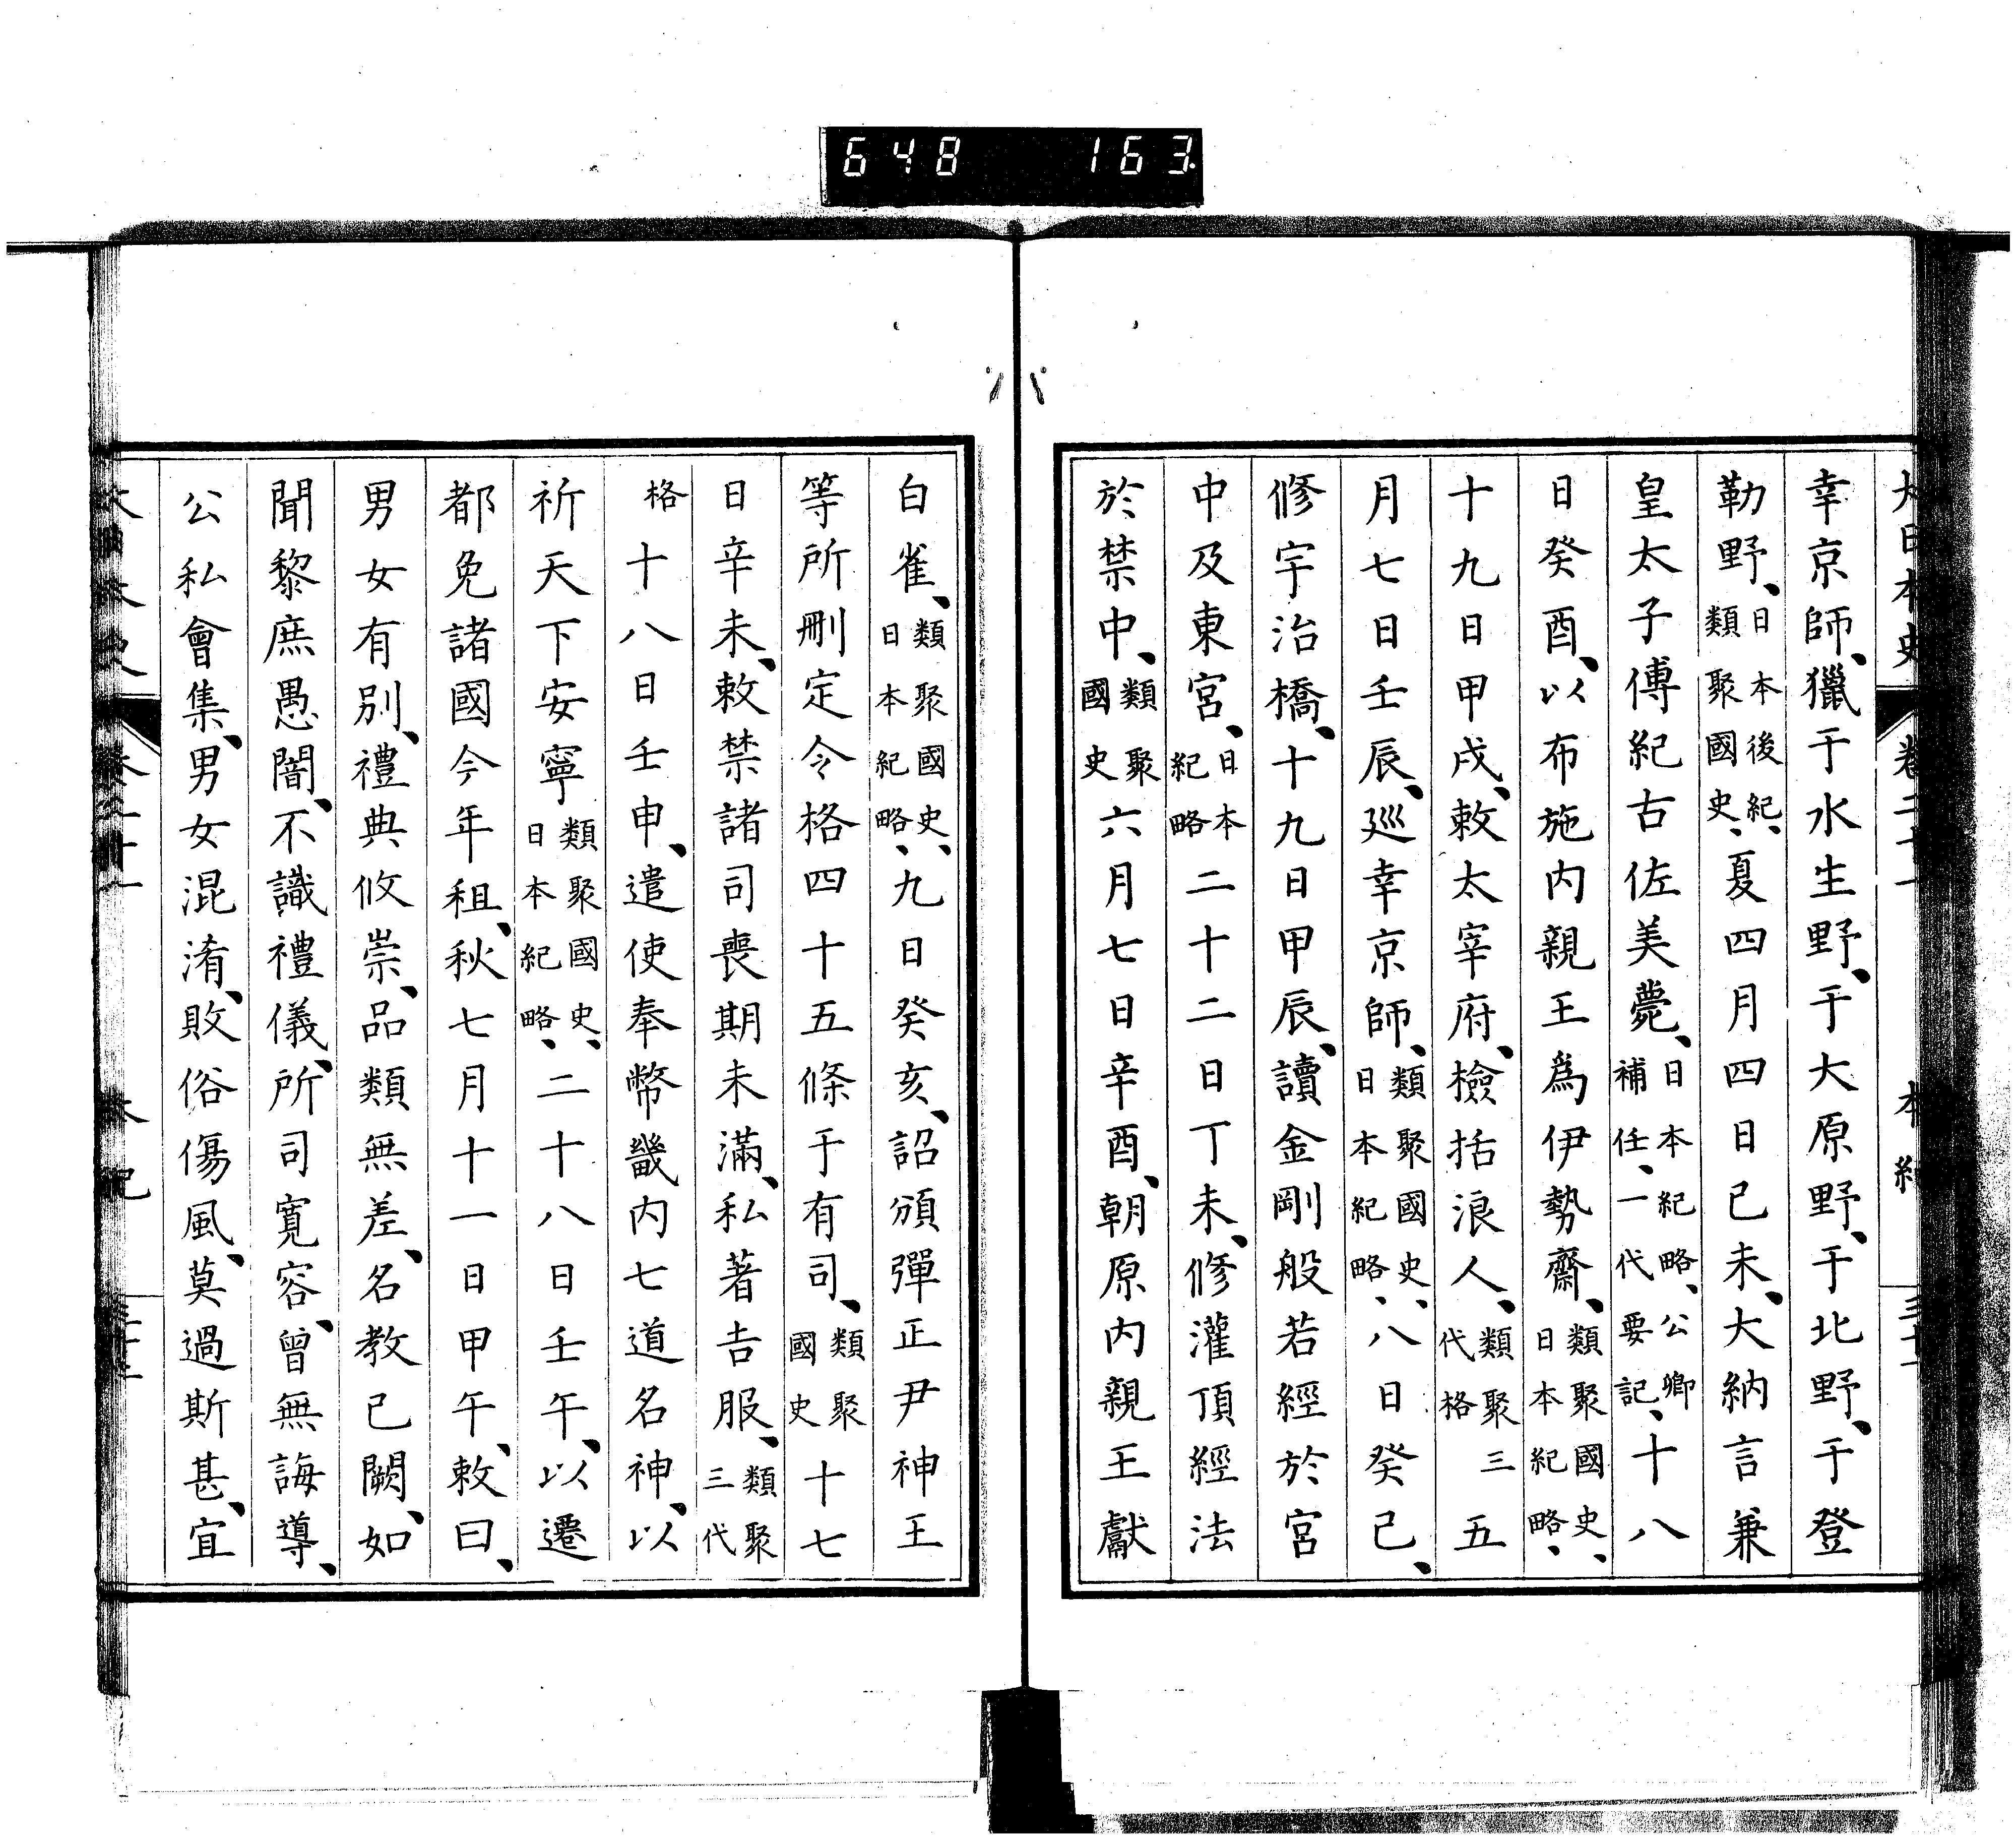 648 163
大日本史 卷二十一 本紀 三十一
幸京師、獵于水生野、于大原野、于北野、于登
勒野、日本後紀、類聚國史、夏四月四日己未、大納言兼
皇太子傅紀古佐美薨、日本紀略、公卿補任、一代要記、十八
日癸酉、以布施內親王爲伊勢齋、類聚國史、日本紀略、
十九日甲戌、敕太宰府、檢括浪人、類聚三代格五
月七日壬辰、巡幸京師、類聚國史、日本紀略、八日癸巳、
修宇治橋、十九日甲辰、讀金剛般若經於宮
中及東宮、日本紀略二十二日丁未、修灌頂經法
於禁中、類聚國史六月七日辛酉、朝原內親王獻
白雀、類聚國史、日本紀略、九日癸亥、詔頒彈正尹神王
等所刪定令格四十五條于有司、類聚國史十七
日辛未、敕禁諸司喪期未滿、私著吉服、類聚三代
格十八日壬申、遣使奉幣畿內七道名神、以
祈天下安寧類聚國史、日本紀略、二十八日壬午、以遷
都免諸國今年租、秋七月十一日甲午、敕曰、
男女有別、禮典攸崇、品類無差、名教已闕、如
聞黎庶愚闇、不識禮儀、所司寬容、曾無誨導、
公私會集、男女混淆、敗俗傷風、莫過斯甚、宜